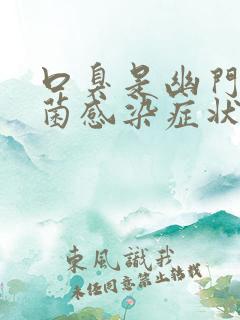 口臭是幽門
菌感染症状
東風識我
未经同意禁止转载